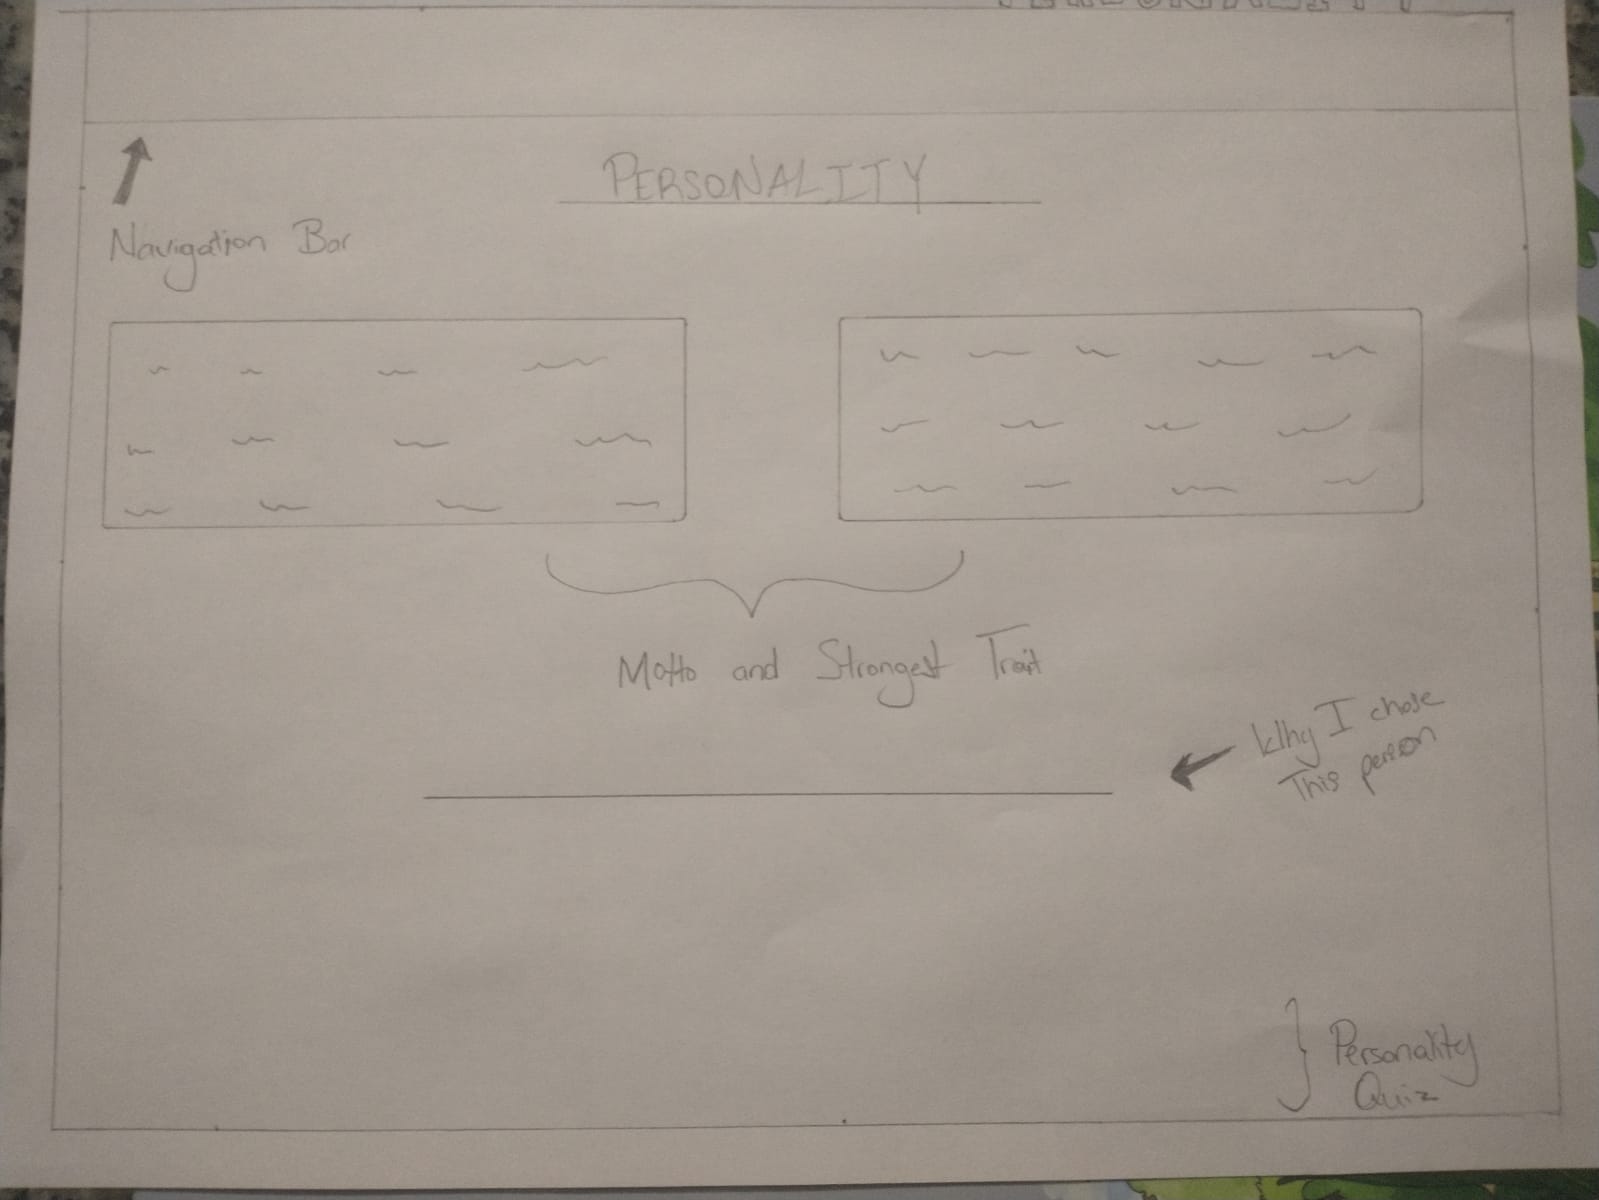 PERSONALITY
PERSONALITY
Navigation Bar
Motto and Strongest Trait
Why I chose
This person
Personality
Quiz